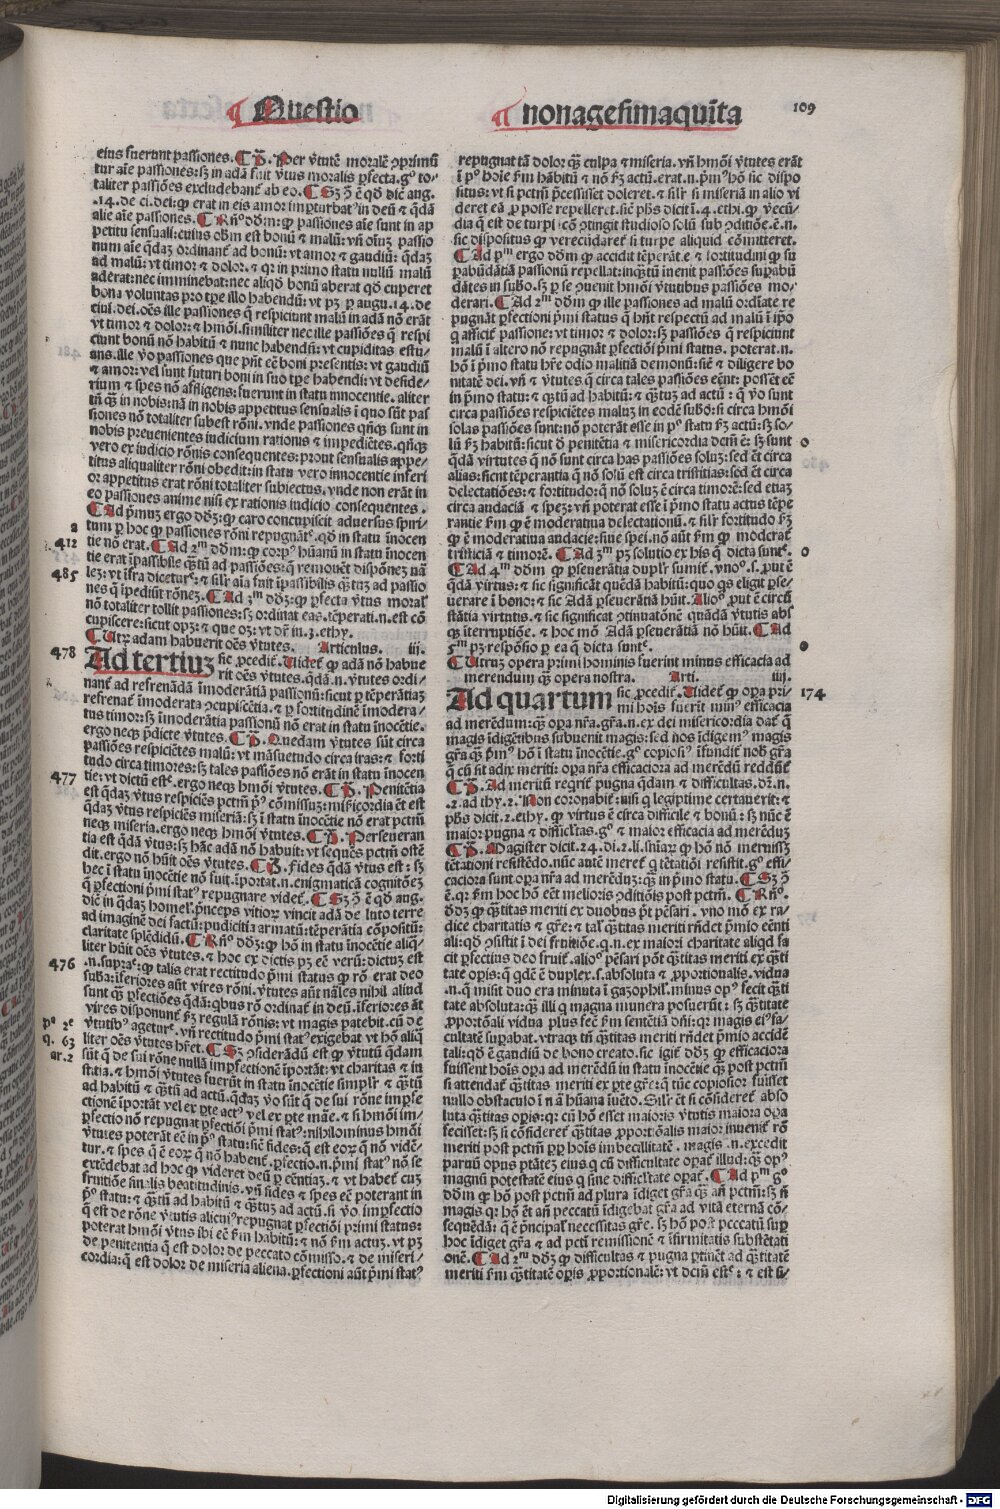 ¶ Questio
¶ nonagesimaquīta
109
eius fuerunt passiones. ¶ P̄. Per v̄tutē moralē ꝯprimū
tur aīe passiones: sꝫ in adā fuit v̄tus moralis ꝑfecta. gͦ to-
taliter passiōes excludebant᷑ ab eo. ¶ Sꝫ ꝯ̄ ē qd̄ dic̄ aug.
.14. de ci. dei: ꝙ erat in eis amor imꝑturbatꝰ in deū ⁊ q̄dā
alie aīe passiones. ¶ Rn̄ͦ dd̄m: ꝙ passiones aīe sunt in ap
petitu sensuali: cuius obm̄ est bonū ⁊ malū: vn̄ oīuꝫ passio
num aīe q̄dāꝫ ordinant᷑ ad bonū: vt amor ⁊ gaudiū: q̄dāꝫ
ad malū: vt timor ⁊ dolor. ⁊ qꝛ in primo statu nullū malū
aderat: nec imminebat: nec aliqd̄ bonū aberat qd̄ cuperet
bona voluntas pro tꝑe illo habendū: vt pꝫ ꝑ augu. 14. de
ciui. dei. oēs ille passiones q̄ respiciunt malū in adā nō erāt
vt timor ⁊ dolor: ⁊ hmōi. similiter nec ille passiōes q̄ respi
ciunt bonū nō habitū ⁊ nunc habendū: vt cupiditas estu-
ans. ille v̄o passiones que pn̄t eē boni presentis: vt gaudiū
⁊ amor: vel sunt futuri boni in suo tꝑe habendi: vt deside-
rium ⁊ spes nō affligens: fuerunt in statu innocentie. aliter
tn̄ qꝫ in nobis: nā in nobis appetitus sensualis ī quo sūt pas
siones nō totaliter subest rōni. vnde passiones qn̄qꝫ sunt in
nobis preuenientes iudicium rationis ⁊ impediētes. qn̄qꝫ
vero ex iudicio rōnis consequentes: prout sensualis appe-
titus aliqualiter rōni obedit: in statu vero innocentie inferi
or appetitus erat rōni totaliter subiectus. vnde non erāt in
eo passiones anime nisi ex rationis iudicio consequentes.
¶ Ad pͥmuꝫ ergo dd̄ꝫ: ꝙ caro concupiscit aduersus spiri-
a
tum ꝑ hoc ꝙ passiones rōni repugnāt᷑. qd̄ in statu inocen
412
tie nō erat. ¶ Ad 2ᵐ dd̄m: ꝙ corpꝰ hūanū in statu inocen
tie erat īpassibile qꝫtū ad passiōes: q̄ remouēt dispōneꝫ nā
485
leꝫ: vt īfra dicetur: ⁊ sil̄r aīa fuit īpassibilis qꝫtuꝫ ad passio
nes q̄ īpediūt rōneꝫ. ¶ Ad 3ᵐ dd̄ꝫ: ꝙ ꝑfecta v̄tus moral᷑
nō totaliter tollit passiones: sꝫ ordinat eas. tēperati. n. est cō
cupiscere: sicut opꝫ: ⁊ que oꝫ: vt dr̄ in. 3. ethy.
¶ Utrꝫ adam habuerit oēs v̄tutes. Articulus. iij.
478
Ad tertiuꝫ sic ꝓcedit᷑. Uidet᷑ ꝙ adā nō habue
rit oēs v̄tutes. q̄dā. n. v̄tutes ordi-
nant᷑ ad refrenādā īmoderātiā passionū: sicut ꝑ tēperātiaꝫ
refrenat᷑ īmoderata ꝯcupisc̄ētia. ⁊ ꝑ fortitudinē īmodera-
tus timor: sꝫ īmoderātia passionū nō erat in statu īnocētie.
ergo neqꝫ p̄dicte v̄tutes. ¶ P̄. Quedam v̄tutes sūt circa
passiōes respiciētes malū: vt māsuetudo circa iras: ⁊ forti
tudo circa timores: sꝫ tales passiōes nō erāt in statu īnocen
477
tie: vt dictū est᷑. ergo neqꝫ hmōi v̄tutes. ¶ P̄. Penitētia
est q̄daꝫ v̄tus respiciēs pctm̄ pͥꝰ cōmissuꝫ: mīsꝫicordia ēt est
q̄daꝫ v̄tus respiciēs miseriā: sꝫ ī statu īnocētie nō erat pctm̄
neqꝫ miseria. ergo neqꝫ hmōi v̄tutes. ¶ P̄. Perseueran
tia est q̄dā v̄tus: sꝫ hāc adā nō habuit: vt sequēs pctm̄ ostē
dit. ergo nō hūit oēs v̄tutes. ¶ P̄. Fides q̄dā v̄tus est: sꝫ
hec ī statu īnocētie nō fuit. īportat. n. enigmaticā cognitōeꝫ
q̄ ꝑfectioni pͥmi statꝰ repugnare videt᷑. ¶ Sꝫ ꝯ̄ ē qd̄ aug.
dic̄ in q̄daꝫ homel᷑. pͥnceps vitioꝝ vincit adā de luto terre
ad imaginē dei factū: pudicitia armatū: tēperātia cōpositū:
claritate splēdidū. ¶ Rn̄ͦ dd̄ꝫ: ꝙ hō in statu īnocētie aliq̄-
liter hūit oēs v̄tutes. ⁊ hoc ex dictis pꝫ eē verū: dictuꝫ est
476
.n. supra᷑: ꝙ talis erat rectitudo pͥmi status ꝙ rō erat deo
subā: īferiores aūt vires rōni. v̄tutes aūt nāles nihil aliud
sunt qꝫ ꝑfectiōes q̄dā: qbus rō ordinat᷑ in deū. īferiores āt
vires disponunt᷑ ẜꝫ regulā rōnis: vt magis patebit. cū de
pͣ 2ᵉ
v̄tutibꝰ agetur᷑. vn̄ rectitudo pͥmi statꝰ exigebat vt hō aliq̄
q. 63
liter oēs v̄tutes hr̄et. ¶ Sꝫ ꝯsiderādū est ꝙ v̄tutū q̄dam
ar. 2
sūt q̄ de sui rōne nullā imꝑfectionē īportāt: vt charitas ⁊ in
stitia. ⁊ hmōi v̄tutes fuerūt in statu īnocētie simplr̄ ⁊ qꝫtū
ad habitū ⁊ qꝫtū ad actū. q̄daꝫ v̄o sūt q̄ de sui rōne imꝑfe
ctionē īportāt vel ex ꝑte actꝰ vel ex ꝑte māe. ⁊ si hmōi im-
ꝑfectio nō repugnat ꝑfectiōi pͥmi statꝰ: nihilominus hmōi
v̄tutes poterāt eē in pͥͦ statu: sic̄ fides: q̄ est eoꝝ q̄ nō vidē-
tur. ⁊ spes q̄ ē eoꝝ q̄ nō habent᷑. ꝑfectio. n. pͥmi statꝰ nō se
extēdebat ad hoc ꝙ videret deū ꝑ eēntiaꝫ. ⁊ vt haberet᷑ cuꝫ
fruitiōe finalis beatitudinis. vn̄ fides ⁊ spes eē poterant in
pͥͦ statu: ⁊ qꝫtū ad habitū ⁊ qꝫtuꝫ ad actū. si v̄o imꝑfectio
q̄ est de rōne v̄tutis alicuiꝰ repugnat ꝑfectiōi primi status:
poterat hmōi v̄tus ibi eē ẜm habitū: ⁊ nō ẜm actuꝫ. vt pꝫ
de penitentia q̄ est dolor de peccato cōmisso. ⁊ de miseri-
cordia: q̄ est dolor de miseria aliena. ꝑfectioni aūt pͥmi stat᷑
repugnat tā dolor qꝫ culpa ⁊ miseria. vn̄ hmōi v̄tutes erāt
ī pͥͦ hoīe ẜm hābitū ⁊ nō ẜꝫ actū. erat. n. pͥmꝰ hō sic dispo
situs: vt si pctm̄ p̄cessisset doleret. ⁊ sil̄r si miseriā in alio vi
deret eā ꝓ posse repelleret. sic̄ phs̄ dicit ī. 4. ethi. ꝙ vecū-
dia q̄ est de turpi ꝯtingit studioso solū sub ꝯditiōe. ē. n.
sic dispositus ꝙ verecūdaret᷑ si turpe aliquid cōmitteret.
¶ Ad pᵐ ergo dd̄m ꝙ accidit tēperāt. e ⁊ fortitudini ꝙ su
ꝑabūdātiā passionū repellat: inqꝫtū inenit passiōes suꝑabū
dātes in subo. sꝫ ꝑ se ꝯuenit hmōi v̄tutibus passiōes mo-
derari. ¶ Ad 2ᵐ dd̄m ꝙ ille passiones ad malū ordīate re
pugnāt ꝑfectioni pͥmi status q̄ hn̄t respectū ad malū ī ip̄o
q afficit᷑ passione: vt timor ⁊ dolor: sꝫ passiōes q̄ respiciunt
malū ī altero nō repugnāt ꝑfectiōi pͥmi status. poterat. n.
hō ī pͥmo statu hr̄e odio malitiā demonū: sic̄ ⁊ diligere bo
nitatē dei. vn̄ ⁊ v̄tutes q̄ circa tales passiōes eēnt: possēt eē
in pͥmo statu: ⁊ qꝫtū ad habitū: ⁊ qꝫtuꝫ ad actū: q̄ v̄o sunt
circa passiōes respiciētes maluꝫ in eodē subo: si circa hmōi
solas passiōes sunt: nō poterāt esse in pͥͦ statu ẜꝫ actū: sꝫ so-
o
lū ẜꝫ habitū: sicut ð penitētia ⁊ misericordia dcm̄ ē: sꝫ sunt
q̄dā virtutes q̄ nō sunt circa has passiōes soluꝫ: sed ēt circa
alias: sicut tēperantia q̄ nō solū est circa tristitias: sed ēt circa
delectatiōes: ⁊ fortitudo: q̄ nō soluꝫ ē circa timorē: sed etiaꝫ
circa audaciā ⁊ speꝫ: vn̄ poterat esse ī pͥmo statu actus tēpe
rantie ẜm ꝙ ē moderatiua delectationū. ⁊ sil̄r fortitudo ẜꝫ
ꝙ ē moderatiua audacie: siue spei. nō aūt ẜm ꝙ moderat᷑
o
tristiciā ⁊ timorē. ¶ Ad 3ᵐ pꝫ solutio ex his q̄ dicta sunt᷑.
¶ Ad 4ᵐ dd̄m ꝙ ꝑseuerātia duplr̄ sumit᷑. vnoͦ. s. ꝓut ē
q̄dā virtus: ⁊ sic significat quēdā habitū: quo qs eligit ꝑse-
uerare ī bono: ⁊ sic Adā ꝑseuerātiā hūit. Alioͦ ꝓut ē circū
stātia virtutis. ⁊ sic significat ꝯtinuatōnē quādā v̄tutis abs
qꝫ īterruptiōe. ⁊ hoc mō Adā ꝑseuerātiā nō hūit. ¶ Ad
o
5ᵐ pꝫ respōsio ꝑ ea q̄ dicta sunt᷑.
¶ Utruꝫ opera primi hominis fuerint minus efficacia ad
merendum qꝫ opera nostra. Arti. iiij.
174
Ad quartum sic ꝓcedit᷑. Uidet᷑ ꝙ oꝑa pri-
mi hoīs fuerīt minꝰ efficacia
ad merēdum: qꝫ oꝑa nr̄a. gr̄a. n. ex dei misericordia dat᷑ q̄
magis īdigētibus subuenit magis: sed nos īdigemꝰ magis
gr̄a qꝫ pͥmꝰ hō ī statu īnocētie. gͦ copiosiꝰ īfundit᷑ nob᷑ gr̄a
q̄ cū sit radix meriti: oꝑa nr̄a efficaciora ad merēdū reddūt᷑
¶ P̄. Ad meritū reqrit᷑ pugna q̄dam ⁊ difficultas. dr̄. n.
.2. ad thy. 2. Non coronabit᷑: nisi q legitime certauerit: ⁊
phs̄ dicit. 2. ethy. ꝙ virtus ē circa difficile ⁊ bonū: sꝫ nūc ē
maior pugna ⁊ difficltas. gͦ ⁊ maior efficacia ad merēduꝫ
¶ P̄. Magister dicit. 24. di. 2. li. sn̄iaꝝ ꝙ hō nō meruissꝫ
tētationi resistēdo. nūc autē meret᷑ q tētatiōi resistit. gͦ effi-
caciora sunt oꝑa nr̄a ad merēduꝫ: qꝫ in pͥmo statu. ¶ Sꝫ ꝯ̄
ē. qꝛ ẜm hoc hō eēt melioris ꝯditiōis post pctm̄. ¶ Rn̄ͦ.
dd̄ꝫ ꝙ qꝫtitas meriti ex duobus pōt pēsari. vno mō ex ra-
dice charitatis ⁊ gr̄e: ⁊ tal᷑ qꝫtitas meriti rn̄det pͥmio eēnti
ali: qd̄ ꝯsistit ī dei fruitiōe. q. n. ex maiori charitate aliqd̄ fa
cit ꝑfectius deo fruit᷑. alioͦ pēsari pōt qꝫtitas meriti ex qꝫti
tate oꝑis: q̄ qdē ē duplex. s. absoluta ⁊ ꝓportionalis. vidua
.n. q̄ misit duo era minuta ī gazophil᷑. minus opꝰ fecit qꝫti
tate absoluta: qꝫ illi q magna munera posuerūt: sꝫ qꝫtitate
ꝓportōali vidua plus fec̄ ẜm sentētiā dn̄i: qꝛ magis eiꝰ fa-
cultatē suꝑabat. vtraqꝫ tn̄ qꝫtitas meriti rn̄det pͥmio accidē
tali: qd̄ ē gaudiū de bono creato. sic igit᷑ dd̄ꝫ ꝙ efficaciora
fuissent hoīs oꝑa ad merēdū in statu īnocētie qꝫ post pctm̄
si attendat᷑ qꝫtitas meriti ex ꝑte gr̄e: q̄ tūc copiosior fuisset
nullo obstaculo ī nā hūana īuēto. Sil̄r ēt si cōsideret᷑ abso
luta qꝫtitas oꝑis: qꝛ cū hō esset maioris v̄tutis maiora oꝑa
fecisset: sꝫ si cōsideret᷑ qꝫtitas ꝓportiōalis maior inuenit᷑ rō
meriti post pctm̄ ꝓꝑ hoīs imbecillitatē. magis. n. excedit
paruū opus ptātez eius q cū difficultate oꝑat᷑ illud: qꝫ opꝰ
magnū potestatē eius q sine difficltate oꝑat᷑. ¶ Ad pᵐ gͦ
dd̄m ꝙ hō post pctm̄ ad plura īdiget gr̄a qꝫ an̄ pctm̄: sꝫ nō
magis qꝛ hō ēt an̄ peccatū īdigebat gr̄a ad vitā eternā cō-
sequēdā: q̄ ē pͥncipal᷑ necessitas gr̄e. sꝫ hō post peccatū suꝑ
hoc īdiget gr̄a ⁊ ad pcti remissionē ⁊ īfirmitatis substētati
onē. ¶ Ad 2ᵐ dd̄ꝫ ꝙ difficultas ⁊ pugna ꝑtinēt ad qꝫtitatē
meriti ẜm qꝫtitatē oꝑis ꝓportionalē: vt dcm̄ est᷑: ⁊ est si-
Digitalisierung gefördert durch die Deutsche Forschungsgemeinschaft - DFG